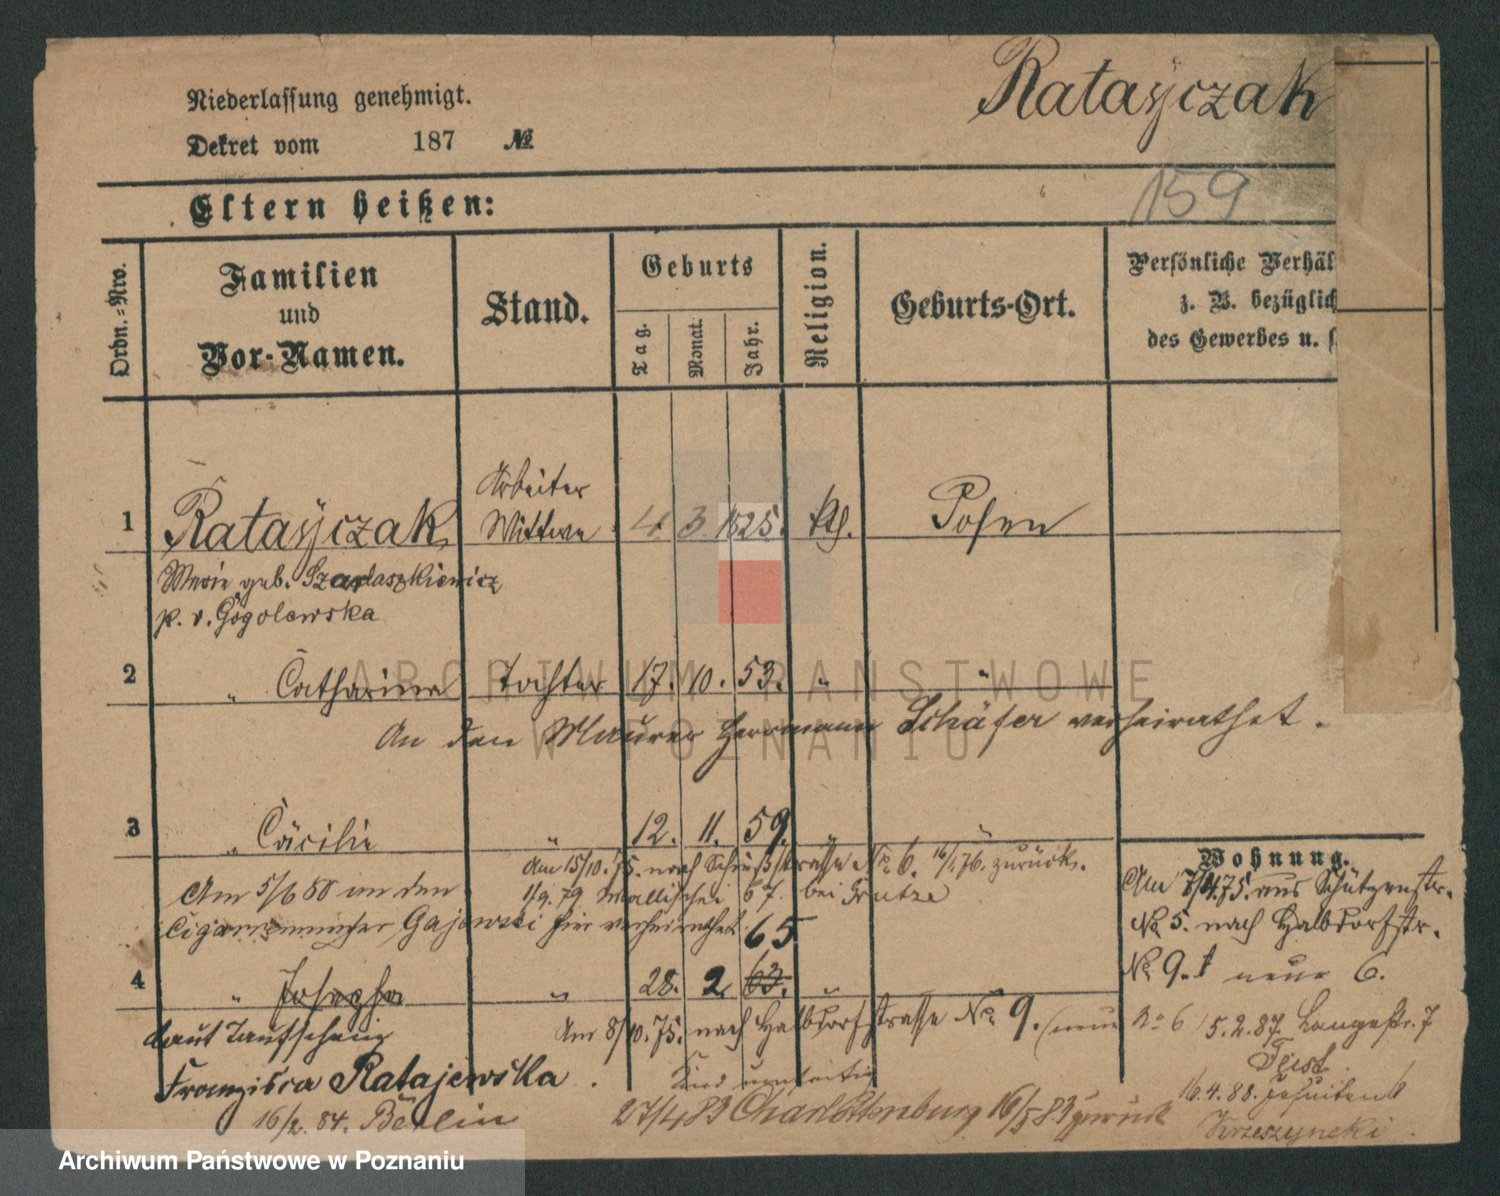 Ratayczak
Niederlassung genehmigt.
Dekret vom 187 №
159
Eltern heißen:
Ordn.-Nro.
Familien
und
Vor-Namen.
Stand.
Geburts
Tag.
Monat.
Jahr.
Religion.
Geburts-Ort.
Persönliche Verhäl
z. B. bezüglich
des Gewerbes u. s
1 Ratayczak Arbeiter Wittwe 4. 3. 1825. kth. Posen
Marie geb. Szardaszkiewicz
p. v. Gogolewska
2 " Catharina Tochter 17. 10. 53. " "
An den Maurer Herrmann Schäfer verheirathet.
3 " Cäcilie " 12. 11. 59. " "
Am 15/10. 75. nach Schießstrasse No. 6. 16/1 76. zurück.
1/9. 79 Wallischei 67. bei Grutze
Am 5/6 80 an den
Cigarrenmacher Gajewski hier verheirathet
65
4 " Josepha " 28. 2. 63. "
Am 8/10. 75. nach Halbdorfstrasse No. 9. (neue No 6
laut Taufschein
Franzisca Ratajewska.
16/2. 84. Berlin
27/4 83 Charlottenburg 16/5 83 zurück
Wohnung.
Am 7/4 75. aus Schützenstr.
No 5. nach Halbdorfstr.
No 9. neue 6.
15.2.87. Langestr. 7
Feist
16.4.88. Jesuitenst 6
Krzeszynski
ARCHIWUM PAŃSTWOWE
W POZNANIU
Archiwum Państwowe w Poznaniu